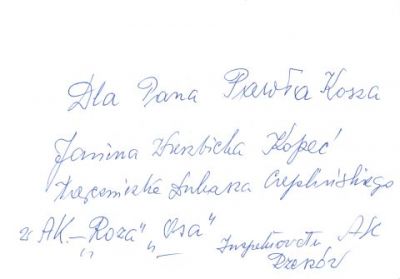 Dla Pana Pawła Kosza
Janina Wierzbicka Kopeć
Łączniczka Łukasza Cieplińskiego
z AK. – „Roza" „Osa"
Inspektoratu AK
Rzeszów